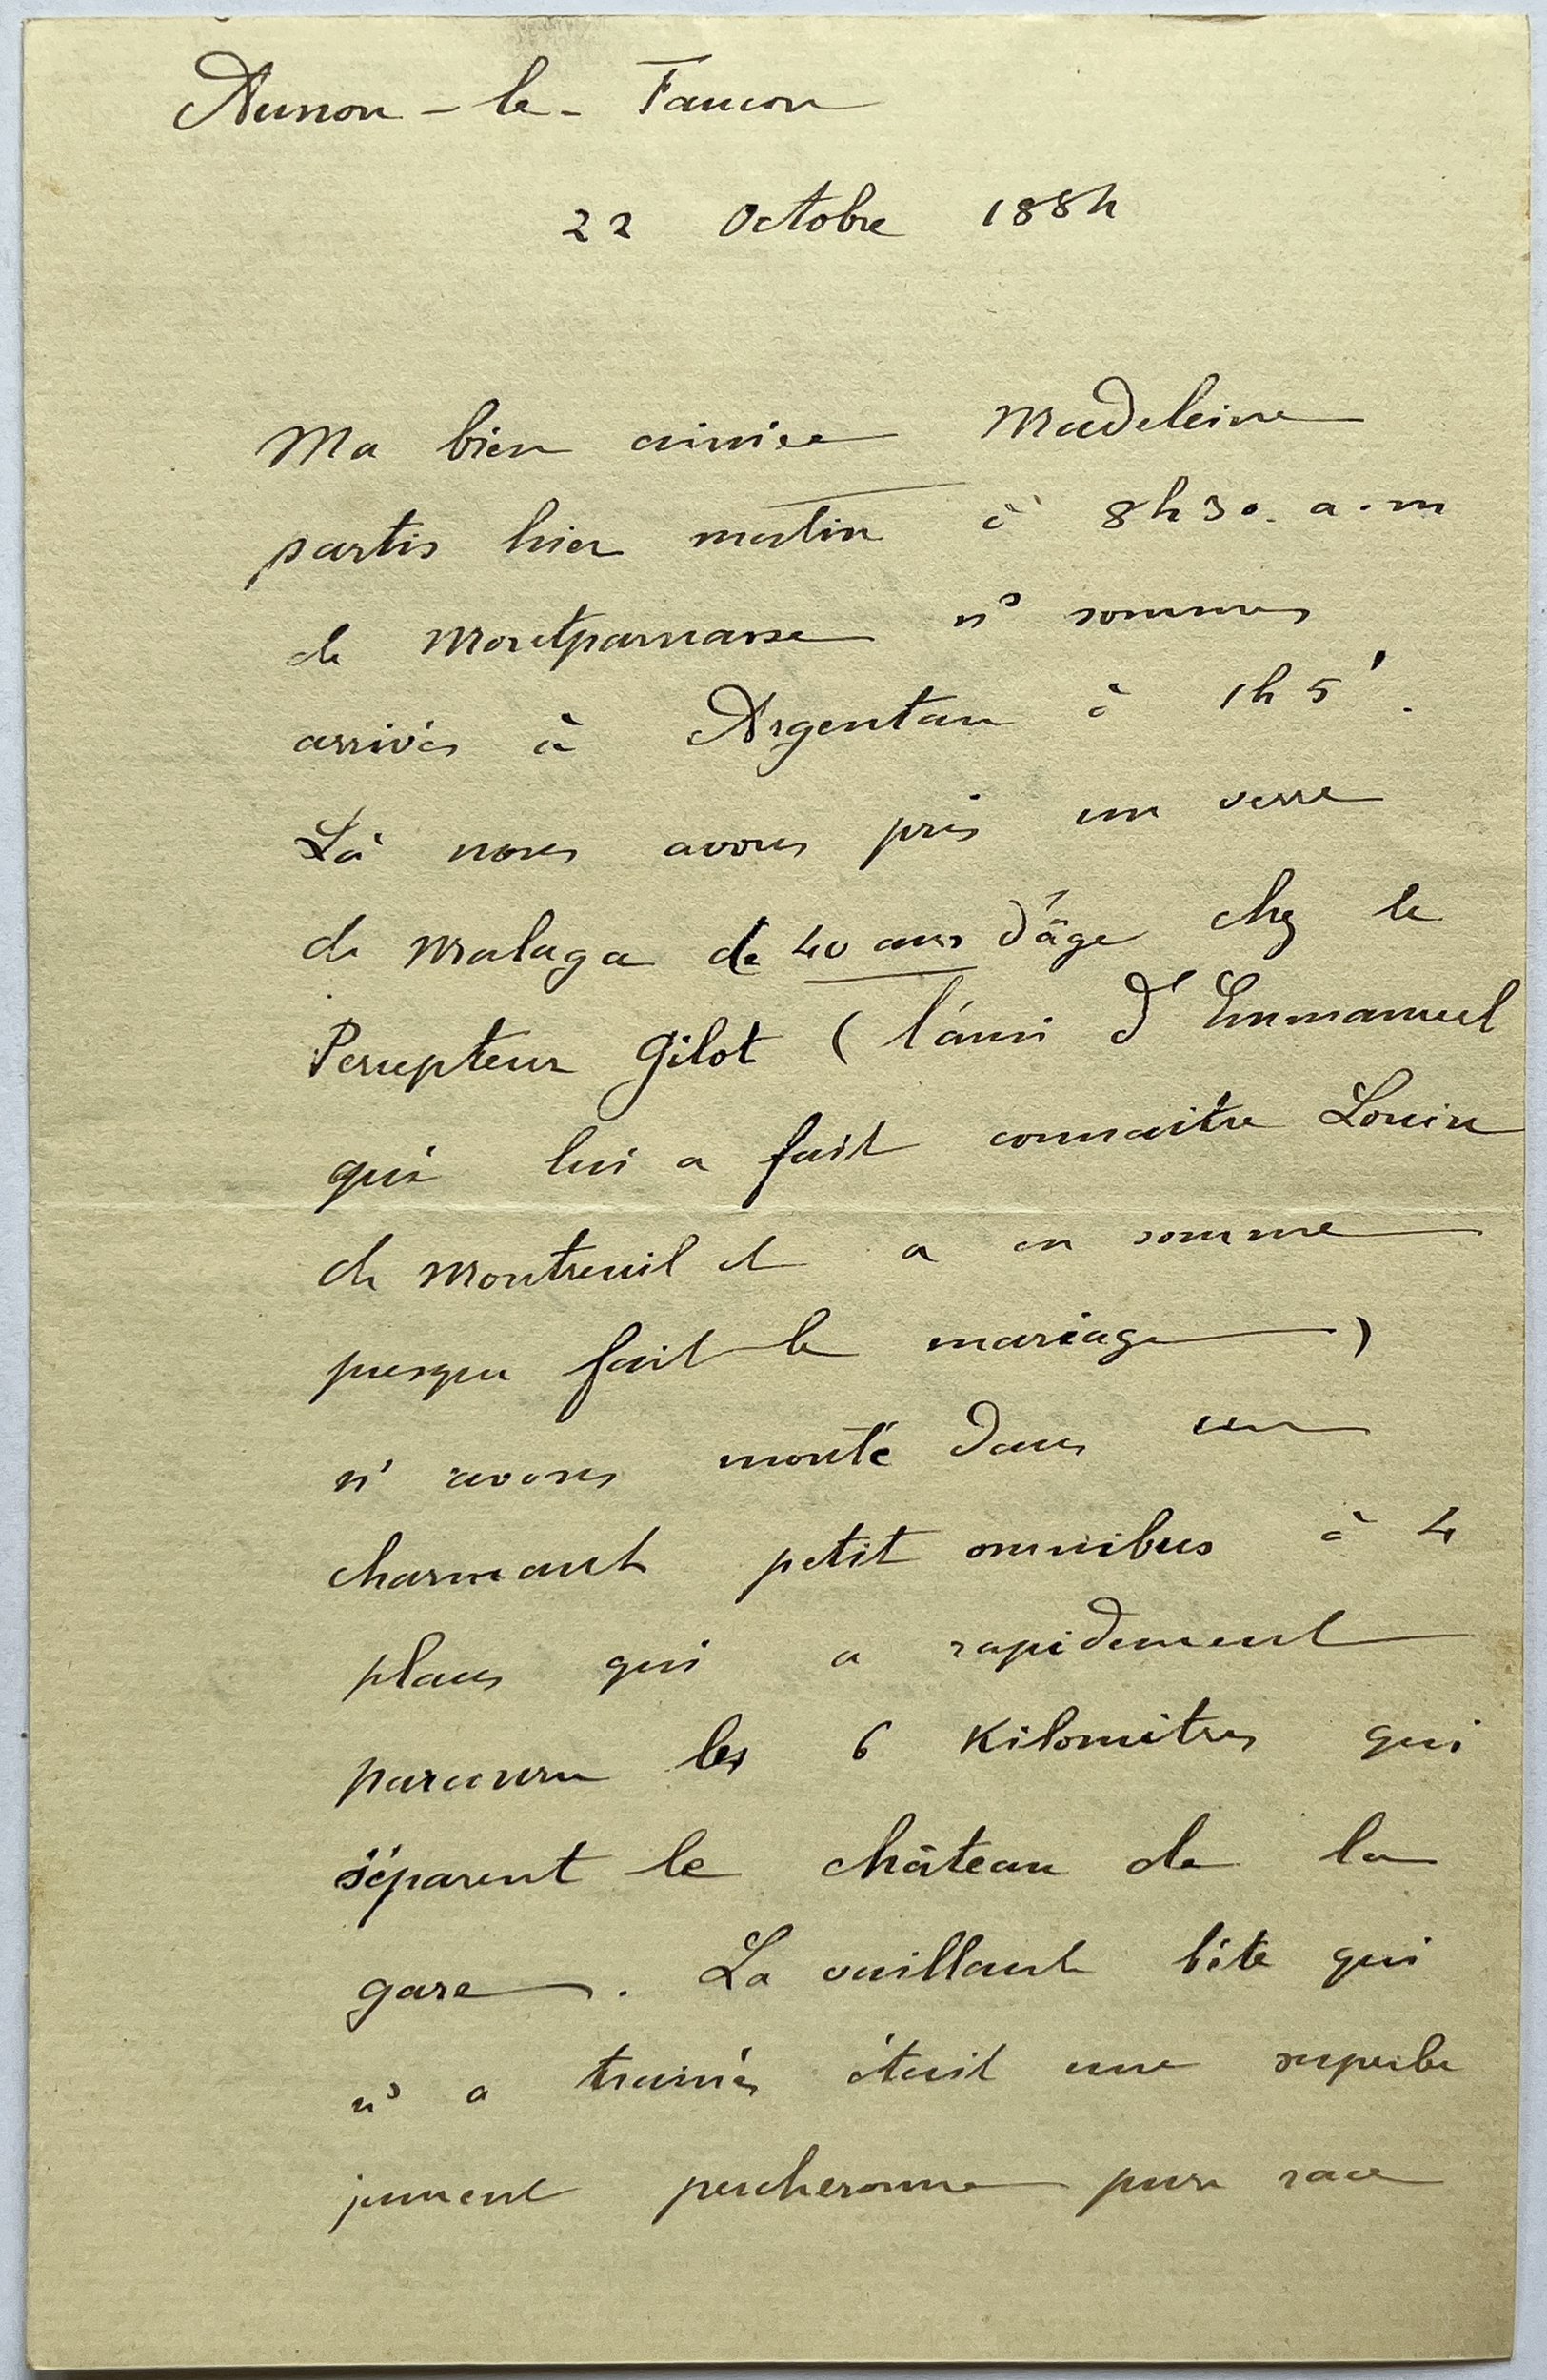 Aunou-le-Faucon
22 Octobre 1884
Ma bien aimée Madeleine
partis hier matin à 8h30. a.m
de Montparnasse ns sommes
arrivés à Argentan à 1h5'.
Là nous avons pris un verre
de Malaga de 40 ans d'âge chez le
Percepteur Gilot (l'ami d'Emmanuel
qui lui a fait connaitre Louise
de Montreuil et a en somme
presque fait le mariage)
ns avons monté dans un
charmant petit omnibus à 4
places qui a rapidement
parcouru les 6 Kilomètres qui
séparent le château de la
gare. La vaillante bête qui
ns a trainés était une superbe
jument percheronne pure race